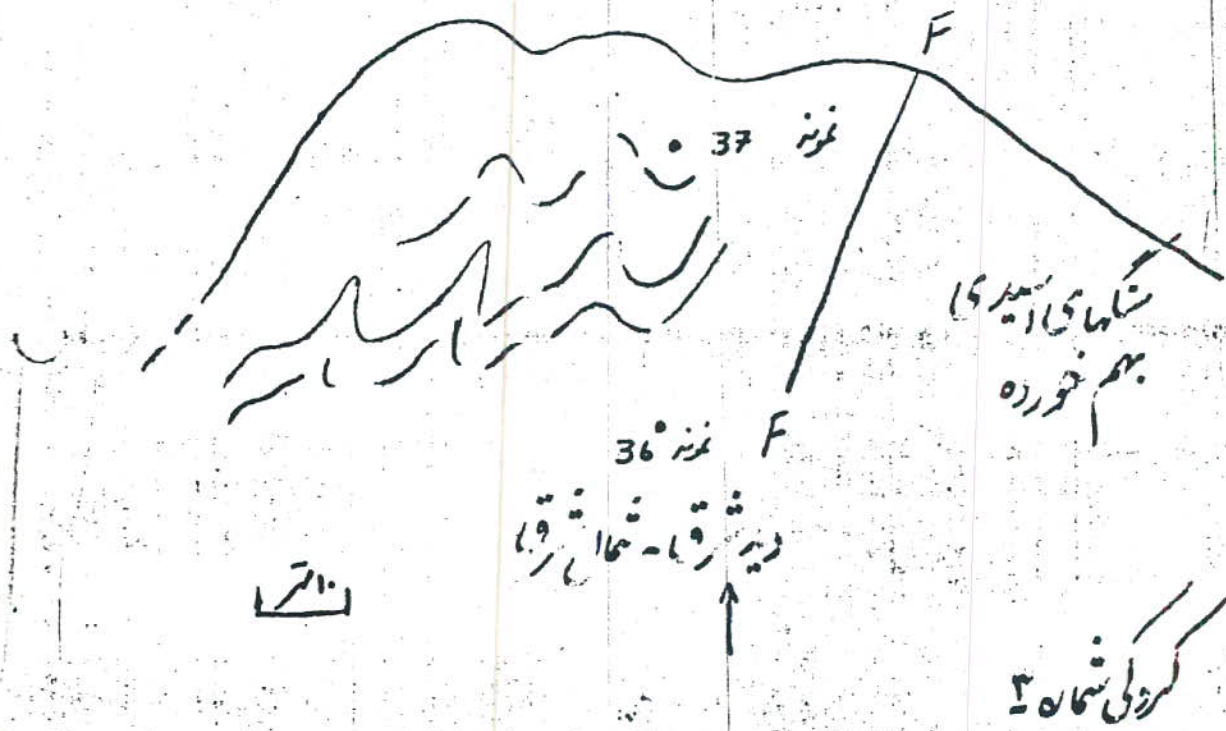 F
نمونه 37
سنگهای اسیدی
بهم خورده
نمونه 36
F
دید شرقی - شمال شرقی
۱۰متر
کروکی شماره ۳